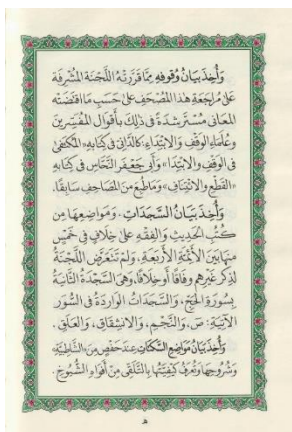 وَأُخِذَ بَيَانُ وُقُوفِهِ مِمَّا قَرَّرَتْهُ اللَّجْنَةُ المُشْرِفَة
عَلَىٰ مُرَاجَعَةِ هٰذَا المُصْحَفِ عَلَىٰ حَسَبِ مَا اقْتَضَتْه
المَعَانِي مُسْتَرْشِدَةً فِي ذٰلِكَ بِأَقْوَالِ المُفَسِّرِينَ
وَعُلَمَاءِ الوَقْفِ وَالابْتِدَاءِ: كَالدَّانِي فِي كِتَابِهِ «المُكْتَفَى
فِي الوَقْفِ وَالابْتِدَا» وَأَبِي جَعْفَرٍ النَّحَّاسِ فِي كِتَابِهِ
«القَطْعِ وَالائْتِنَافِ» وَمَا طُبِعَ مِنَ المَصَاحِفِ سَابِقًا.
وَأُخِذَ بَيَانُ السَّجَدَاتِ، وَمَوَاضِعِهَا مِن
كُتُبِ الحَدِيثِ وَالفِقْهِ عَلَىٰ خِلَافٍ فِي خَمْسٍ
مِنْهَا بَيْنَ الأَئِمَّةِ الأَرْبَعَةِ، وَلَمْ تَتَعَرَّضِ اللَّجْنَةُ
لِذِكْرِ غَيْرِهِم وِفَاقًا أَوْ خِلَافًا، وَهِيَ السَّجْدَةُ الثَّانِيَةُ
بِسُورَةِ الحَجِّ، وَالسَّجَدَاتُ الوَارِدَةُ فِي السُّوَرِ
الآتِيَةِ: صٓ، وَالنَّجْمِ، وَالانشِقَاقِ، وَالعَلَقِ.
وَأُخِذَ بَيَانُ مَوَاضِعِ السَّكَتَاتِ عِندَ حَفْصٍ مِنَ «الشَّاطِبِيَّةِ»
وَشُرُوحِهَا وَتُعْرَفُ كَيْفِيَّتُهَا بِالتَّلَقِّي مِنْ أَفْوَاهِ الشُّيُوخِ.